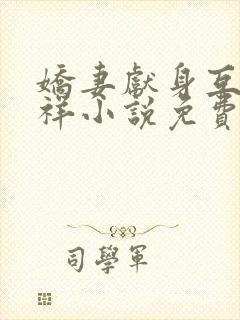 嬌妻獻身互
祥小說免費
司學軍